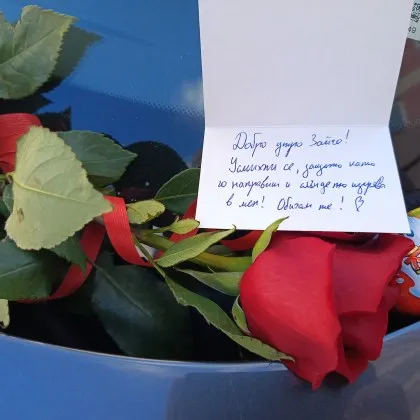 Добро утро Зайчо!
Усмихни се, защото като
го направиш и слънцето изгрява
в мен! Обичам те! ♡